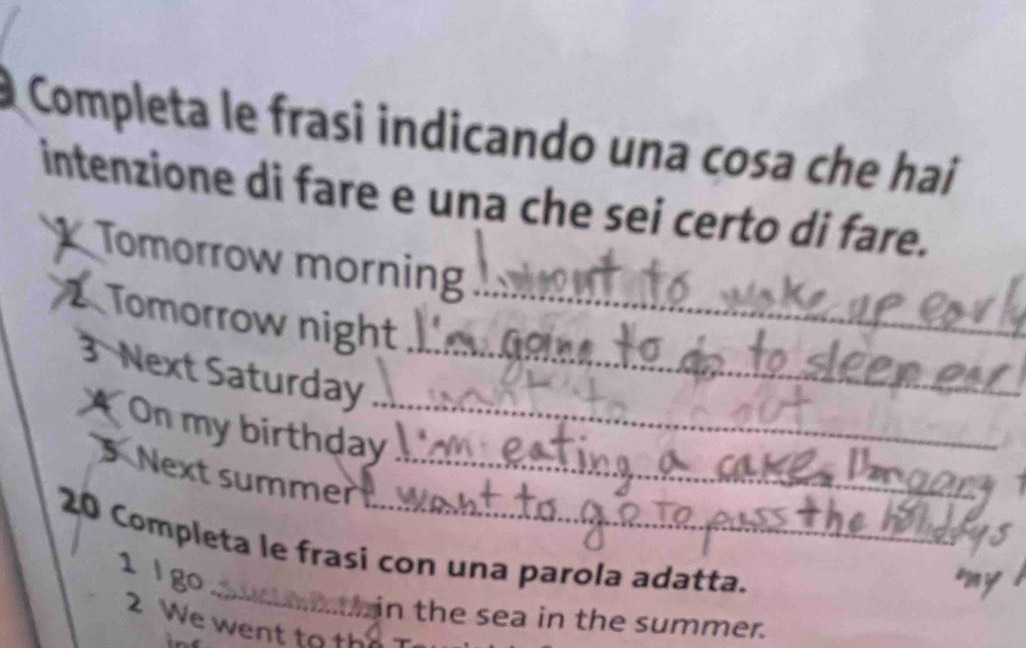 Completa le frasi indicando una cosa che hai
intenzione di fare e una che sei certo di fare.
1 Tomorrow morning I want to wake up early
2 Tomorrow night I'm going to go to sleep earl
3 Next Saturday I want to go out
4 On my birthday I'm eating a cake,
5 Next summer I want to go to pass the holidays
my
20 Completa le frasi con una parola adatta.
1 I go in the sea in the summer.
2 We went to the